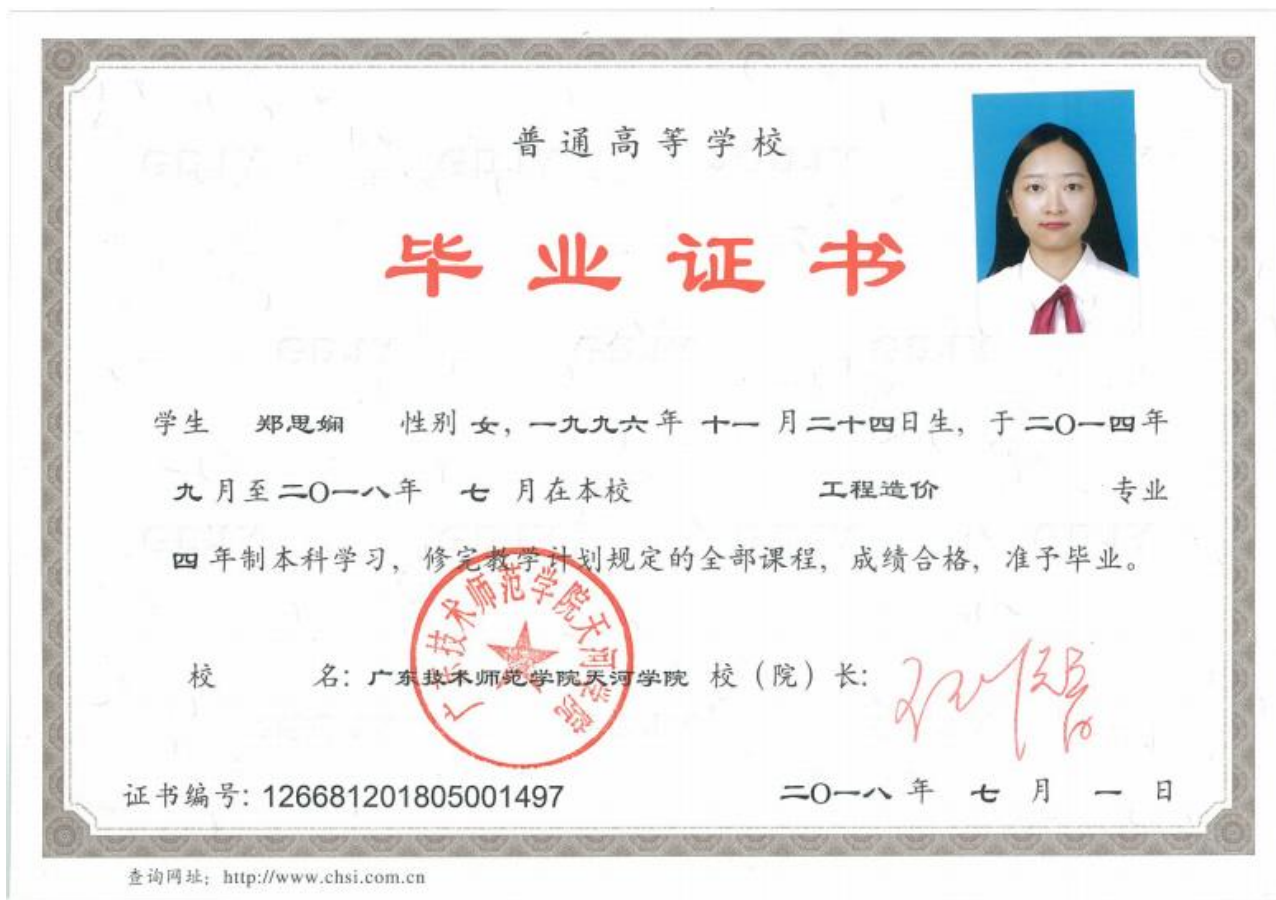 普通高等学校
毕业证书
学生 郑思娴 性别 女，一九九六年 十一 月二十四日生，于二〇一四年
九月至二〇一八年 七 月在本校 工程造价 专业
四年制本科学习，修完教学计划规定的全部课程，成绩合格，准予毕业。
广东技术师范学院天河学院
校 名：广东技术师范学院天河学院 校（院）长：
证书编号：126681201805001497 二〇一八年 七 月 一 日
查询网址：http://www.chsi.com.cn